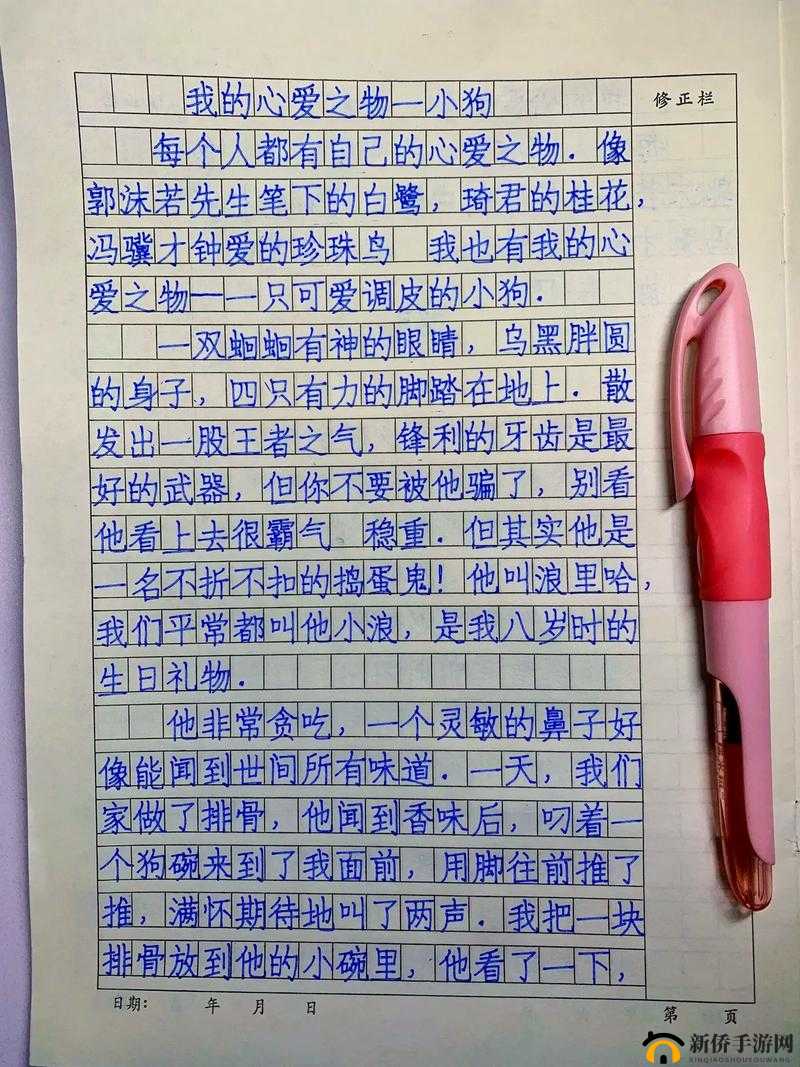 我的心爱之物一小狗
修正栏
每个人都有自己的心爱之物．像
郭沫若先生笔下的白鹭，琦君的桂花，
冯骥才钟爱的珍珠鸟 我也有我的心
爱之物一一只可爱调皮的小狗．
一双蛔蛔有神的眼睛，乌黑胖圆
的身子，四只有力的脚踏在地上．散
发出一股王者之气，锋利的牙齿是最
好的武器，但你不要被他骗了，别看
他看上去很霸气 稳重．但其实他是
一名不折不扣的捣蛋鬼！他叫浪里哈，
我们平常都叫他小浪，是我八岁时的
生日礼物．
他非常贪吃，一个灵敏的鼻子好
像能闻到世间所有味道．一天，我们
家做了排骨，他闻到香味后，叼着一
个狗碗来到了我面前，用脚往前推了
推，满怀期待地叫了两声．我把一块
排骨放到他的小碗里，他看了一下，
日期： 年 月 日
第 页
新侨手游网
XINQIAOSHOUYOUWANG